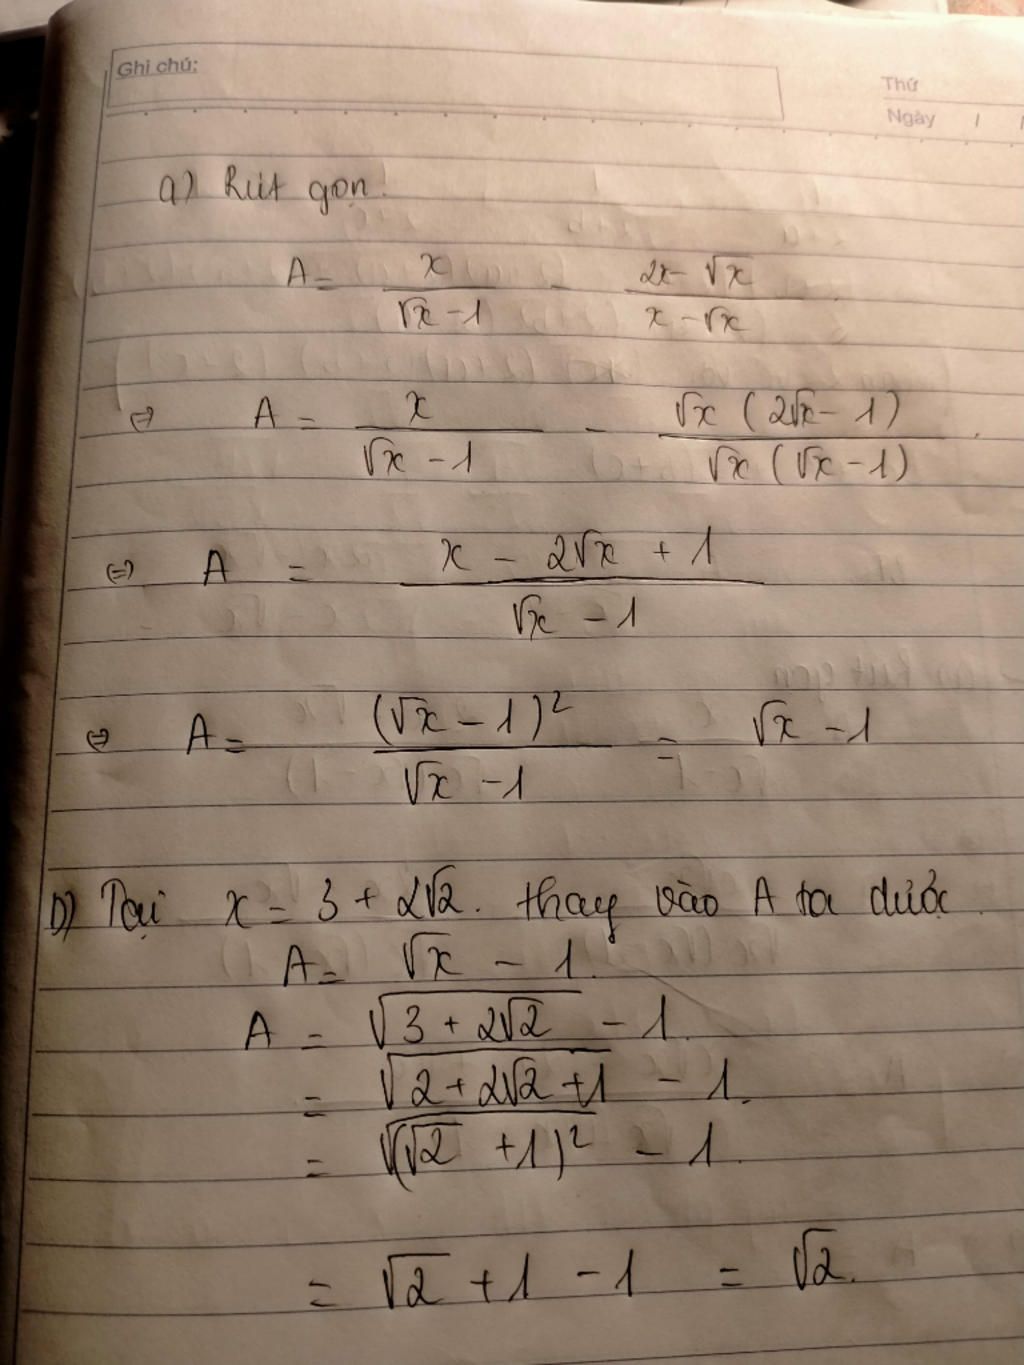 Ghi chú:
Thứ
Ngày / /
a) Rút gọn:
A = x/(√x - 1) - (2x - √x)/(x - √x)
⇔ A = x/(√x - 1) - √x (2√x - 1)/(√x (√x - 1))
⇔ A = (x - 2√x + 1)/(√x - 1)
⇔ A = (√x - 1)²/(√x - 1) = √x - 1
b) Tại x = 3 + 2√2. thay vào A ta được
A = √x - 1.
A = √(3 + 2√2) - 1.
= √(2 + 2√2 + 1) - 1.
= √((√2 + 1)²) - 1.
= √2 + 1 - 1 = √2.